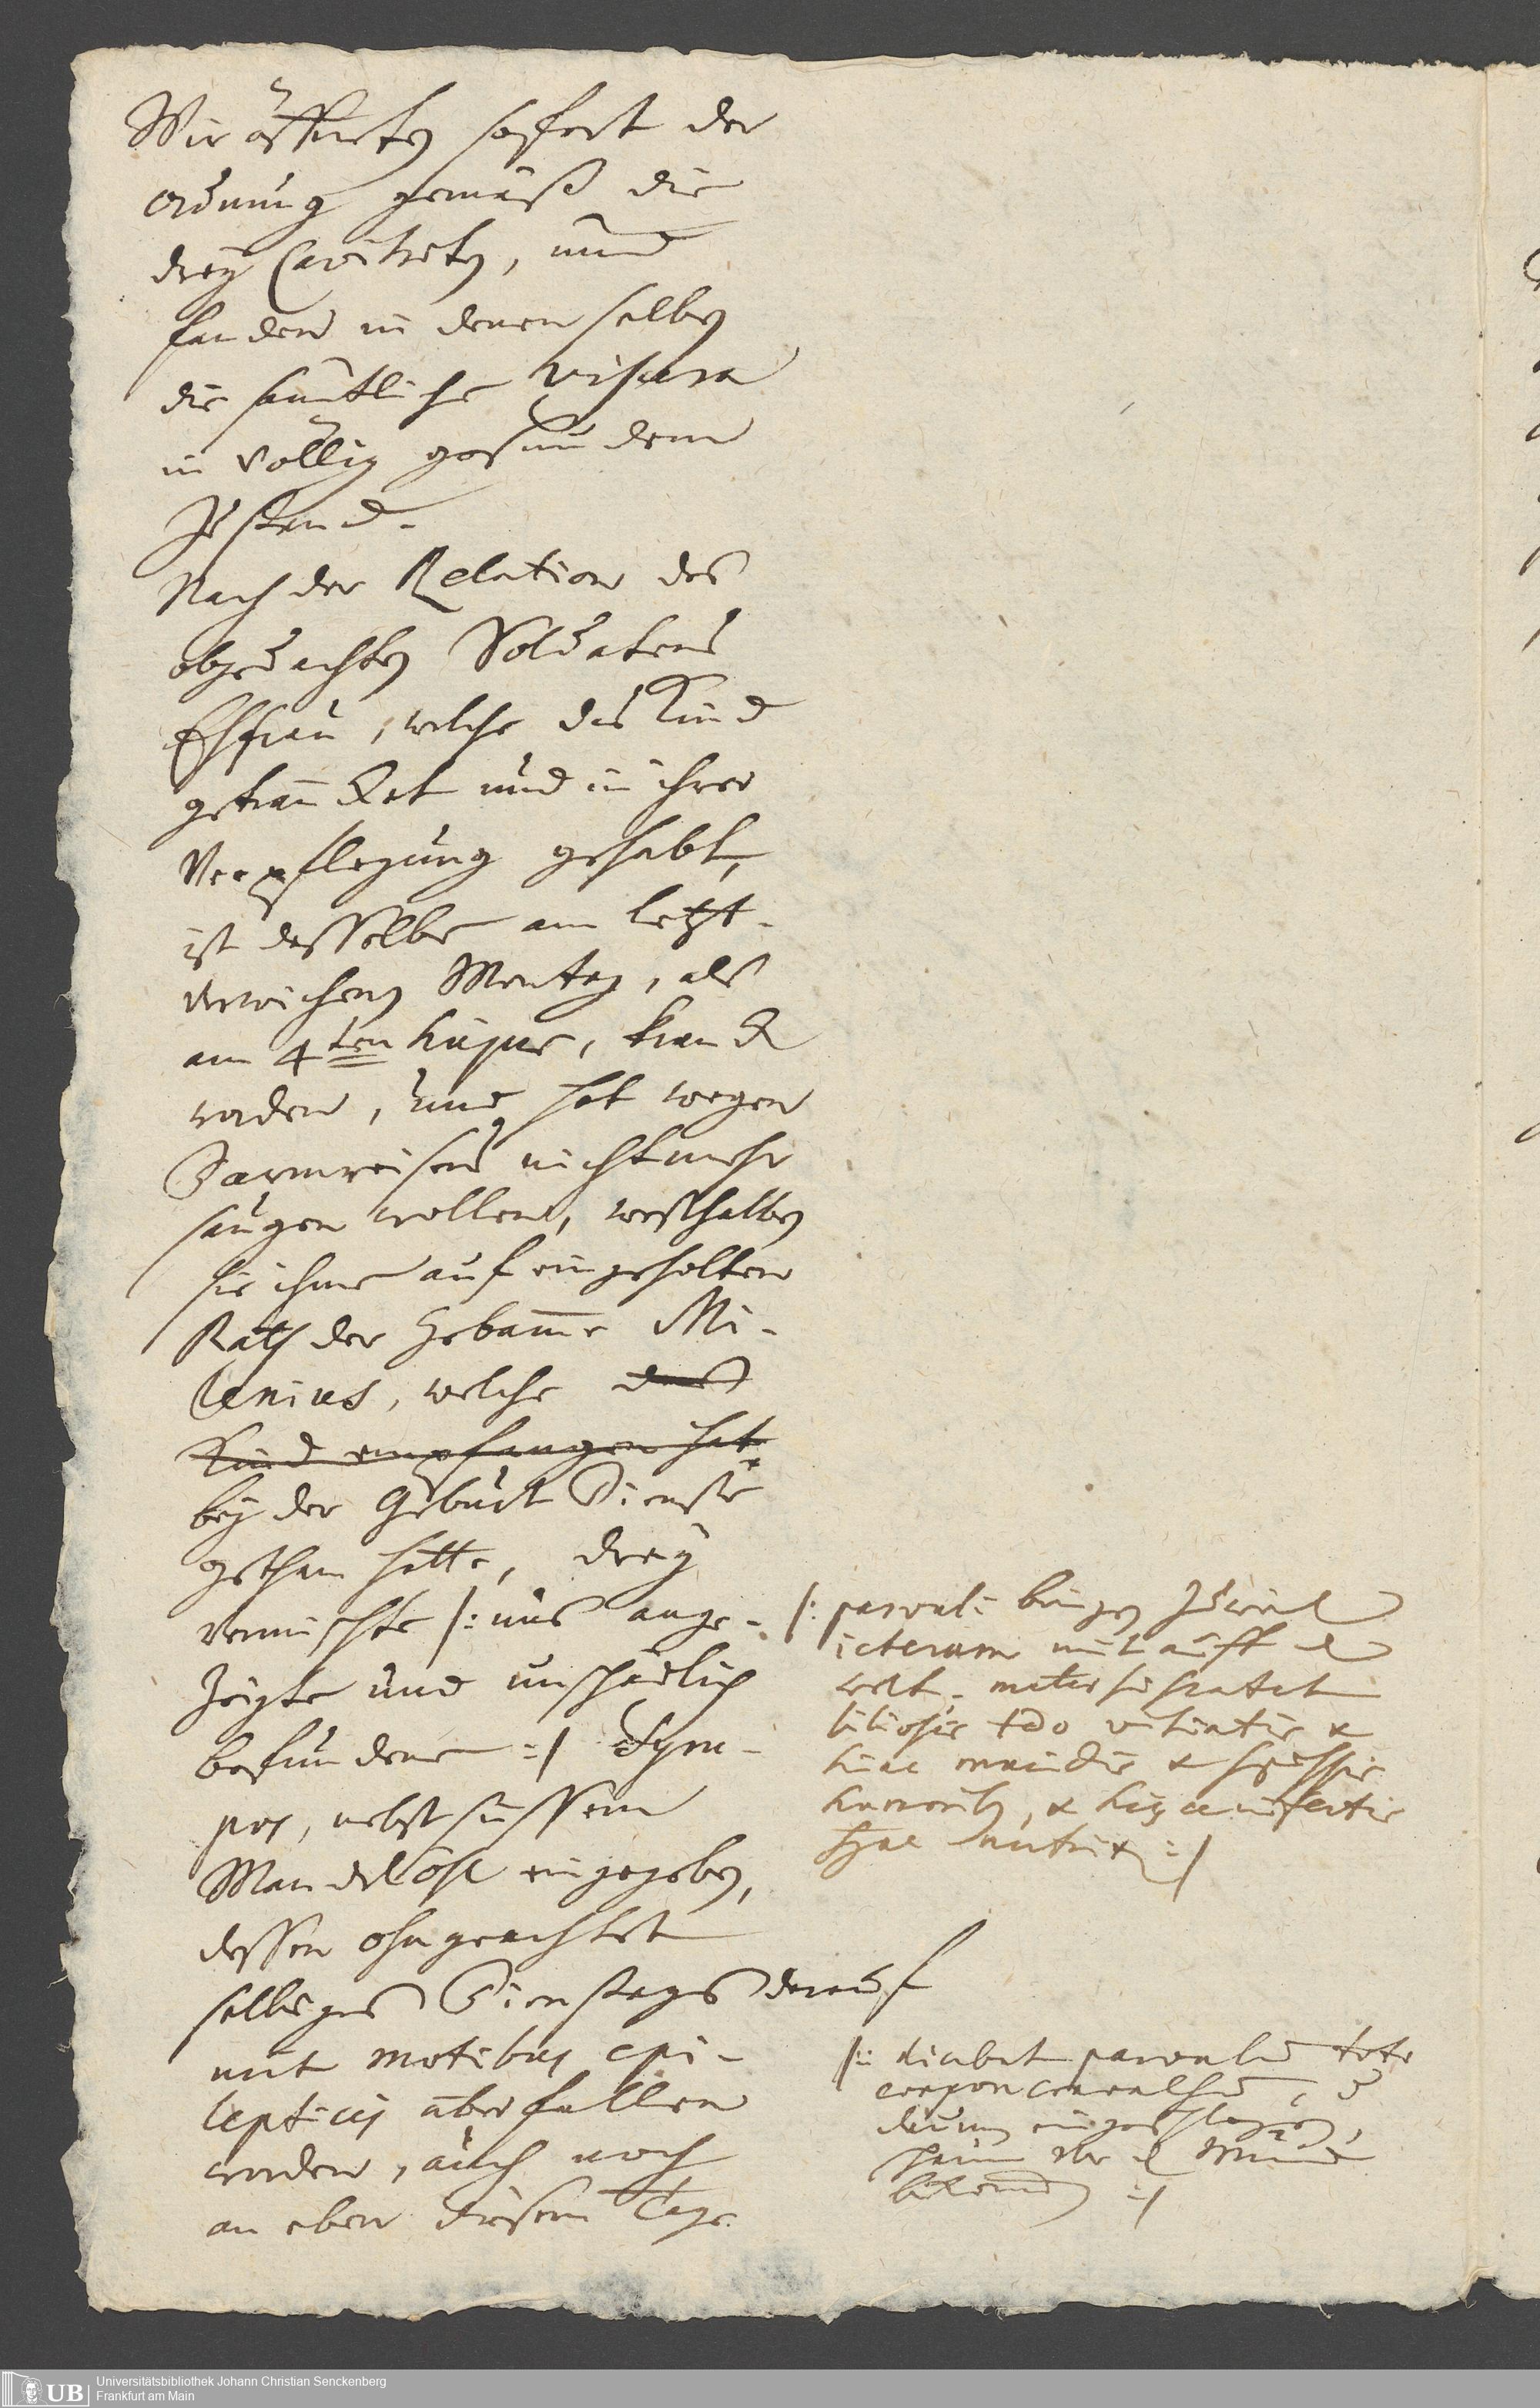 Wir öffneten sofort der
ordnung gemäß die
drey Caviteten, und
fanden in denenselben
die sämtliche viscera
in völlig gesundem
Zustand.
Nach der Relation des
obgedachten Soldatens
Ehfrau, welche das Kind
geträncket und in ihrer
Verpflegung gehabt,
ist desselbe am letzt-
verwichenen Montag, als
am 4ten hujus, kranck
worden, und hat wegen
Darmreisens nicht mehr
saugen wollen, weßhalben
sie ihme auf eingeholten
Rath der Hebamme Mi-
lenius, welche das
Kind empfangen hat
bey der Geburt Dienste
gethan hatte, drey
vermischte /: uns ange-
zeigte und unschädlich
befundene :/ Syru-
pos, nebst süssem
Mandelöhl eingegeben,
dessen ohngeachtet
selbiges Dienstags darauf
mit motibus epi-
lepticis überfallen
worden, auch noch
an eben diesem Tage
/: parvuli
icterum mit
bilioso vitiatis &
hinc &
& hinc
:/
/: parvulus toto
corpore
daumen eingeschlagen,
schaum vor d Mund
:/
Universitätsbibliothek Johann Christian Senckenberg
Frankfurt am Main
UB